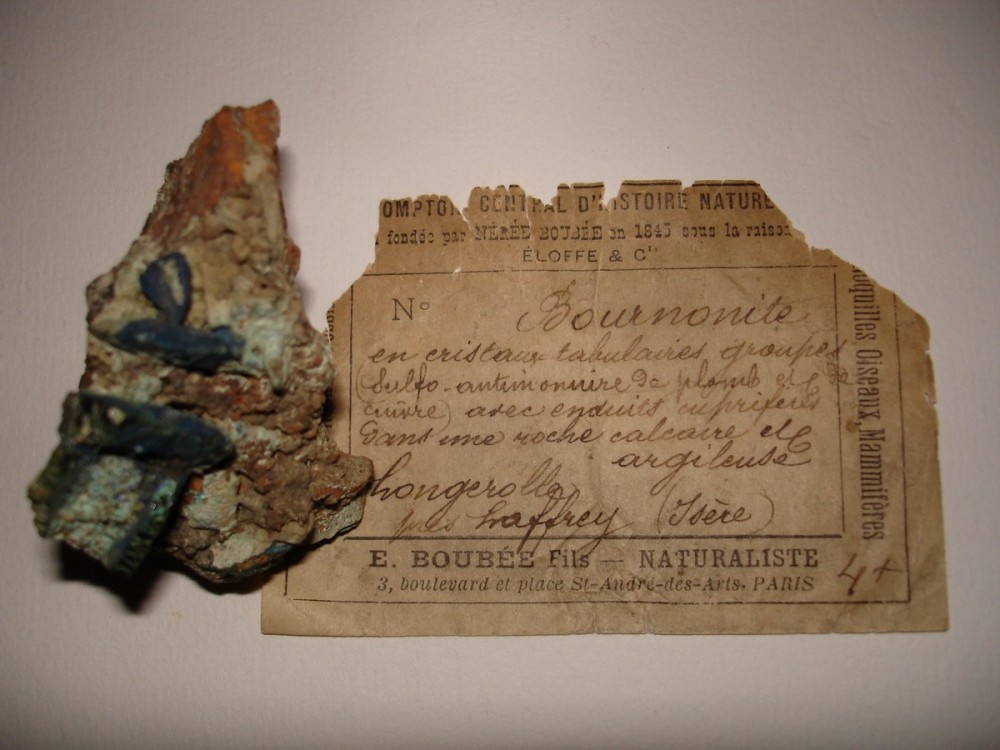 OMPTOI CENTRAL D'HISTOIRE NATURE
fondée par NÉRÉE BOUBÉE en 1845 sous la raison
ÉLOFFE & Cie
N° Bournonite
en cristaux tabulaires groupés
(Sulfo-antimoniure de plomb et de
cuivre) avec enduits cuprifères
dans une roche calcaire et
argileuse
près Laffrey (Isère)
E. BOUBÉE Fils — NATURALISTE
3, boulevard et place St-André-des-Arts. PARIS
4+
oquilles Oiseaux, Mammifères